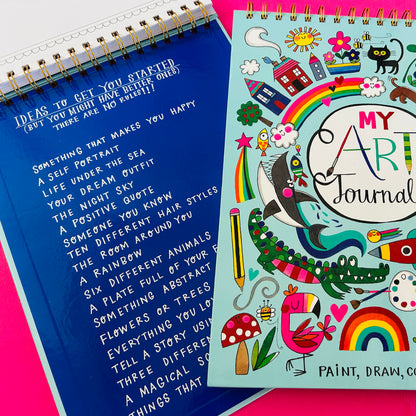 IDEAS TO GET YOU STARTED
(BUT YOU MIGHT HAVE BETTER ONES)
THERE ARE NO RULES!!!)
SOMETHING THAT MAKES YOU HAPPY
A SELF PORTRAIT
LIFE UNDER THE SEA
YOUR DREAM OUTFIT
THE NIGHT SKY
A POSITIVE QUOTE
SOMEONE YOU KNOW
TEN DIFFERENT HAIR STYLES
THE ROOM AROUND YOU
A RAINBOW
SIX DIFFERENT ANIMALS
A PLATE FULL OF YOUR
SOMETHING ABSTRACT
FLOWERS OR TREES
EVERYTHING YOU LO
TELL A STORY USING
THREE DIFFERE
A MAGICAL
THINGS THAT
MY
ART
Journal
PAINT, DRAW, CO